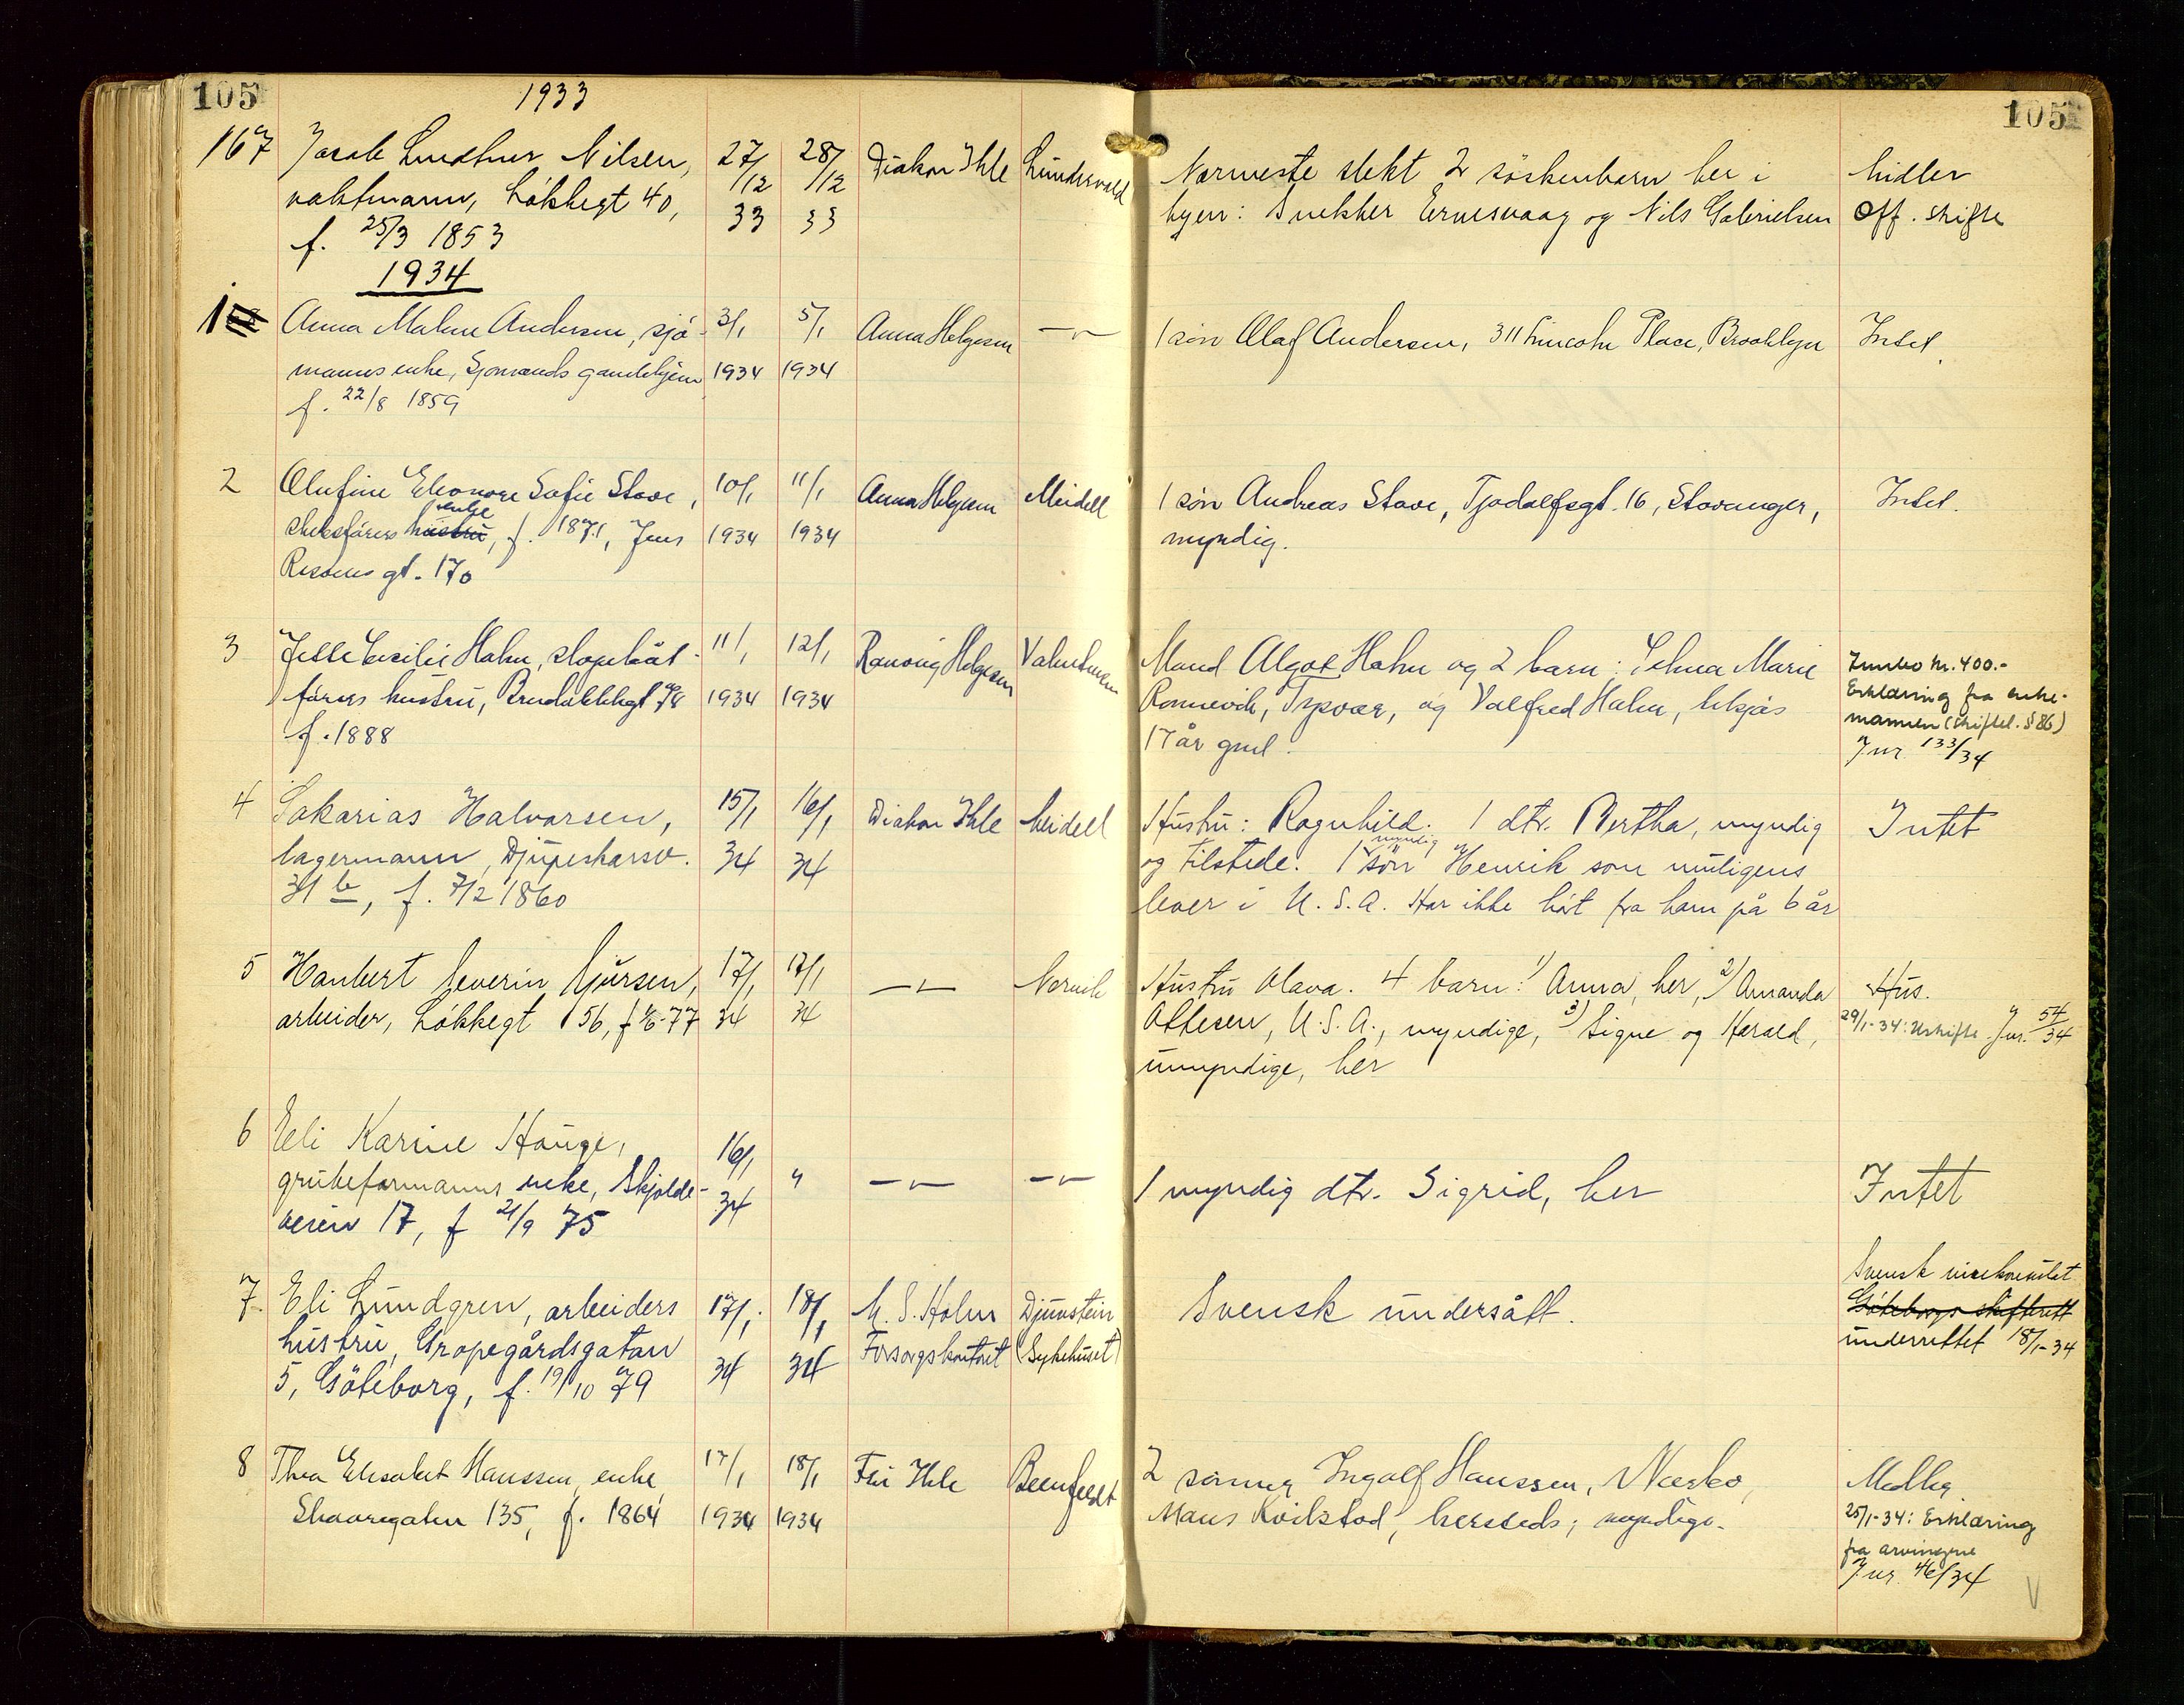 105
1933
105
167 Jacob Nilsen, 27/12 33 28/12 33 Diakon Ihle Lundsvold
vaktmann, Løkkegt 40,
f. 25/3 1853
Nærmeste slekt 2 söskenbarn her i
byen: Snekker Ervesvaag og Nils Gabrielsen
Midler
Off. skifte
1934
1 Anna Malene Andersen, sjö- 3/1 1934 5/1 1934 Anna Helgesen —"—
manns enke, Sjomands gamlehjem
f. 22/8 1859
1 sön Olaf Andersen, 311 Lincoln Place, Brooklyn
Intet.
2 Olufine Eleonore Sofie Stave, 10/1 1934 11/1 1934 Anna Helgesen Meidell
enke
hustru, f. 1871, Jens
gt. 170
1 sön Andreas Stave, Tjodolfsgt. 16, Stavanger,
myndig.
Intet.
3 Cecilie Hahn, 11/1 1934 12/1 1934 Ranveig Helgesen
förers hustru, 78
f. 1888
Mand Algot Hahn og 2 barn: Selma Marie
Rönnevik, Tysvær, og Valfred Hahn,
17 år gml.
Innbo kr. 400.-
Erklæring fra enke-
mannen (skiftel. § 86)
Jnr. 133/34
4 Sakarias Halvorsen, 15/1 34 16/1 34 Diakon Ihle Meidell
lagermann, Djupeskarsv.
31 b, f. 7/2 1860
Hustru: Ragnhild. 1 dtr. Bertha, myndig
og tilstede. 1 myndig sön Henrik som muligens
lever i U.S.A. Har ikke hört fra ham på 6 år
Intet
5 Hanbert Severin Sjursen, 17/1 34 17/1 34 —"— Norvik
arbeider, Løkkegt 56, f. 77
Hustru Olava. 4 barn: 1) Anna, her, 2) Amanda
Ottesen, U.S.A., myndige, 3) Signe og Harald,
umyndige, her
Hus.
29/1-34: Uskifte. Jnr. 54/34
6 Eli Karine Hauge, 16/1 34 " —"— —"—
grubeformanns enke, Skjolde-
veien 17, f 21/9 75
1 myndig dtr. Sigrid, her
Intet
7. Eli Lundgren, arbeiders 17/1. 34 18/1 34 M. S. Holm Djuvstein
hustru, Gropegårdsgatan Forsorgskontoret (Sykehuset)
5, Göteborg, f. 19/10 79
Svensk undersått.
Svensk visekonsulat
Göteborgs skifterett
underrettet 18/1-34
8 Thea Elisabet Hanssen, enke, 17/1 1934 18/1 1934 Fru Ihle Beenfeldt
Skaaregaten 135, f. 1864
2 sönner Ingolf Hanssen, Næsbø,
Mans Kvilstad, hersteds; myndige.
Midler
25/1-34: Erklæring
fra arvingene
Jnr. 46/34